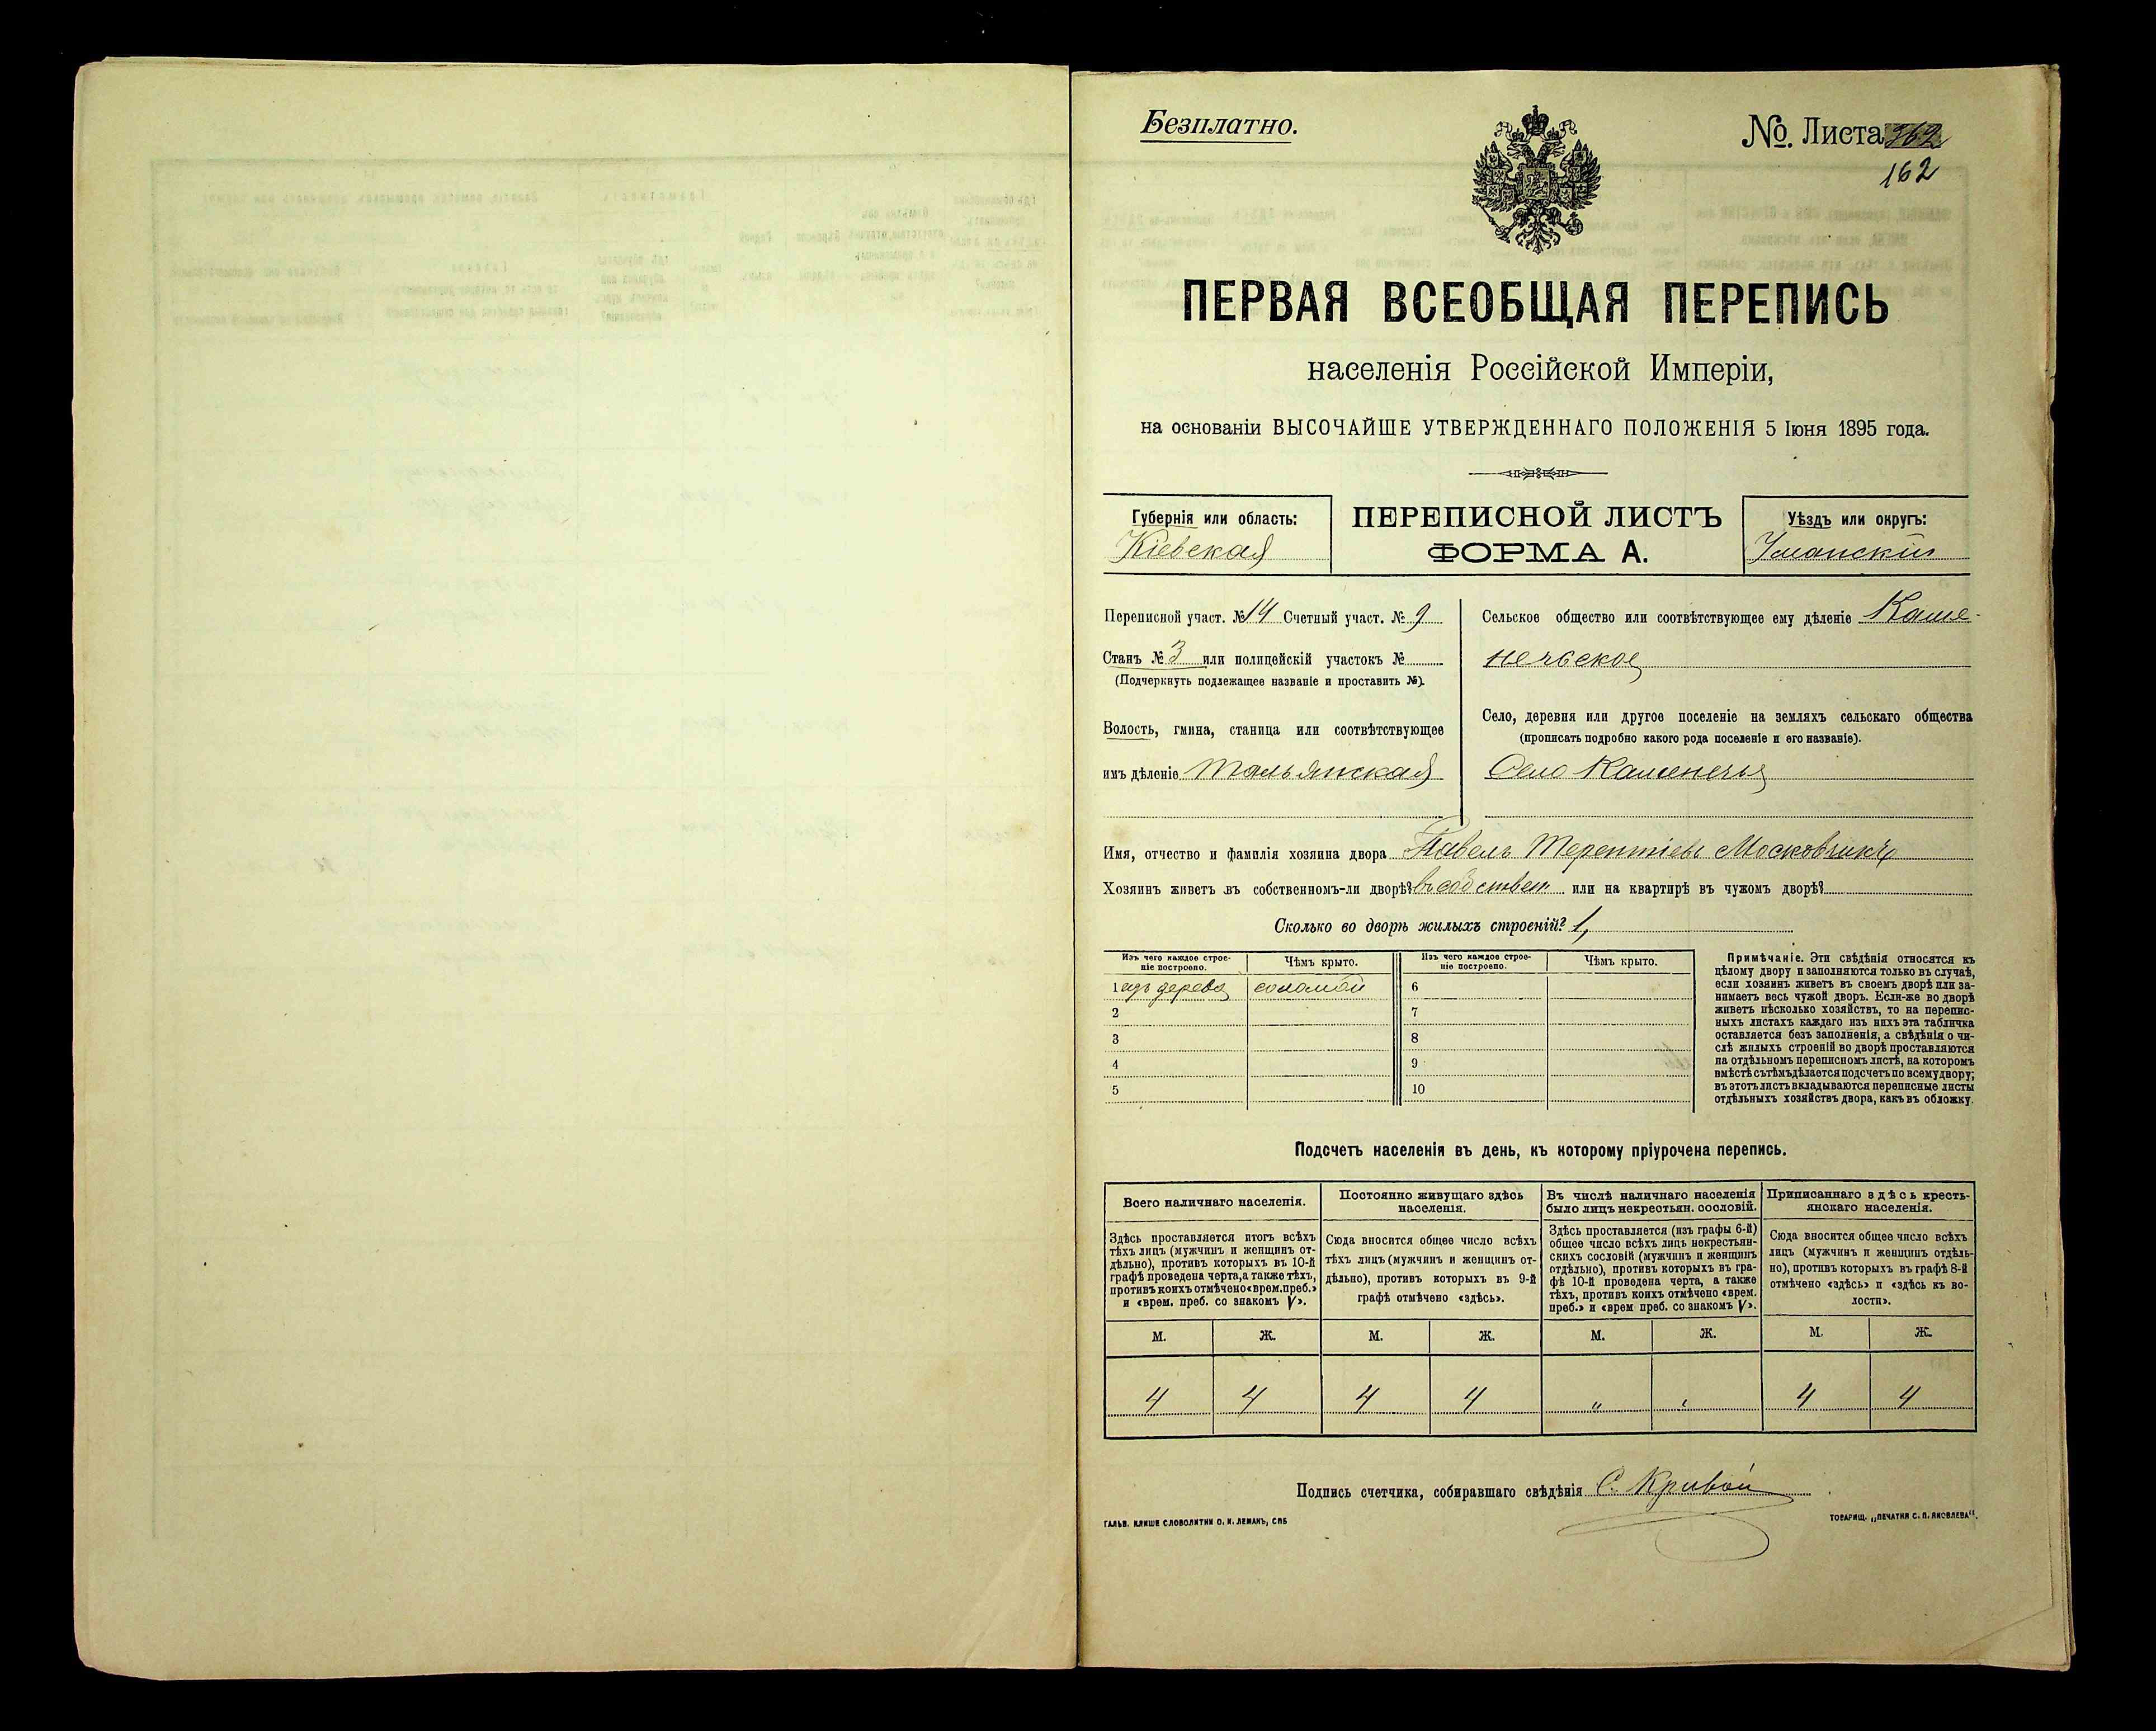 Безплатно.
№. Листа 262
162
ПЕРВАЯ ВСЕОБЩАЯ ПЕРЕПИСЬ
населенія Россійской Имперіи,
на основаніи ВЫСОЧАЙШЕ УТВЕРЖДЕННАГО ПОЛОЖЕНІЯ 5 Іюня 1895 года.
Губернія или область:
Кіевская
ПЕРЕПИСНОЙ ЛИСТЪ
ФОРМА А.
Уѣздъ или округъ:
Уманскій
Переписной участ. № 14 Счетный участ. № 9
Станъ № 3 или полицейскій участокъ №
(Подчеркнуть подлежащее названіе и проставить №).
Волость, гмина, станица или соотвѣтствующее
имъ дѣленіе Тальянская
Сельское общество или соотвѣтствующее ему дѣленіе Каме-
нечьское
Село, деревня или другое поселеніе на земляхъ сельскаго общества
(прописать подробно какого рода поселеніе и его названіе).
Село Каменечье
Имя, отчество и фамилія хозяина двора Павелъ Терентіевъ Московчикъ
Хозяинъ живетъ въ собственномъ-ли дворѣ? въ собствен. или на квартирѣ въ чужомъ дворѣ?
Сколько во дворѣ жилыхъ строеній? 1,
Изъ чего каждое строе-
ніе построено.
Чѣмъ крыто.
Изъ чего каждое строе-
ніе построено.
Чѣмъ крыто.
1 изъ дерева соломой 6
2 7
3 8
4 9
5 10
Примѣчаніе. Эти свѣдѣнія относятся къ
цѣлому двору и заполняются только въ случаѣ,
если хозяинъ живетъ въ своемъ дворѣ или за-
нимаетъ весь чужой дворъ. Если-же во дворѣ
живетъ нѣсколько хозяйствъ, то на перепис-
ныхъ листахъ каждаго изъ нихъ эта табличка
оставляется безъ заполненія, а свѣдѣнія о чи-
слѣ жилыхъ строеній во дворѣ проставляются
на отдѣльномъ переписномъ листѣ, на которомъ
вмѣстѣ съ тѣмъ дѣлается подсчетъ по всему двору;
въ этотъ листъ вкладываются переписные листы
отдѣльныхъ хозяйствъ двора, какъ въ обложку.
Подсчетъ населенія въ день, къ которому пріурочена перепись.
Всего наличнаго населенія.
Здѣсь проставляется итогъ всѣхъ
тѣхъ лицъ (мужчинъ и женщинъ от-
дѣльно), противъ которыхъ въ 10-й
графѣ проведена черта, а также тѣхъ,
противъ коихъ отмѣчено «врем. преб.»
и «врем. преб. со знакомъ V».
Постоянно живущаго здѣсь
населенія.
Сюда вносится общее число всѣхъ
тѣхъ лицъ (мужчинъ и женщинъ от-
дѣльно), противъ которыхъ въ 9-й
графѣ отмѣчено «здѣсь».
Въ числѣ наличнаго населенія
было лицъ некрестьян. сословій.
Здѣсь проставляется (изъ графы 6-й)
общее число всѣхъ лицъ некрестьян-
скихъ сословій (мужчинъ и женщинъ
отдѣльно), противъ которыхъ въ гра-
фѣ 10-й проведена черта, а также
тѣхъ, противъ коихъ отмѣчено «врем.
преб.» и «врем преб. со знакомъ V».
Приписаннаго здѣсь кресть-
янскаго населенія.
Сюда вносится общее число всѣхъ
лицъ (мужчинъ и женщинъ отдѣль-
но), противъ которыхъ въ графѣ 8-й
отмѣчено «здѣсь» и «здѣсь къ во-
лости».
М. Ж. М. Ж. М. Ж. М. Ж.
4 4 4 4 " " 4 4
Подпись счетчика, собиравшаго свѣдѣнія С. Кривой
ГАЛЬВ. КЛИШЕ СЛОВОЛИТНИ О. И. ЛЕМАНЪ, СПБ
ТОВАРИЩ. „ПЕЧАТНЯ С. П. ЯКОВЛЕВА“.